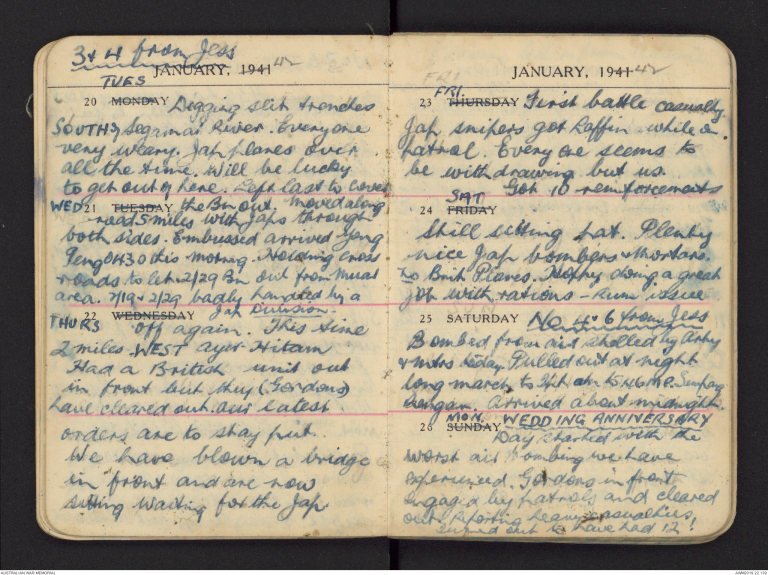 3 & 4 from Jess
JANUARY, 1941 42
TUES
20 MONDAY Digging slit trenches
SOUTH Segamat River. Everyone
very weary. Jap planes over
all the time. Will be lucky
to get out of here. Left last to cover
WED 21 TUESDAY the Bn out. Moved along
road 5 miles with Japs through
both sides. Embussed arrived Yong
Peng 0430 this morning. Holding cross
roads to let 2/29 Bn out from Muar
area. 2/19 & 2/29 badly handled by a
22 WEDNESDAY Jap Division.
THURS off again. This time
2 miles WEST Ayer Hitam
Had a British unit out
in front but they (Gordons)
have cleared out. Our latest
orders are to stay put.
We have blown a bridge
in front and are now
sitting waiting for the Jap.
FRI
JANUARY, 1941 42
FRI.
23 THURSDAY First battle casualty.
Jap snipers got Laffin while on
patrol. Every one seems to
be withdrawing but us.
Got 10 reinforcements
SAT
24 FRIDAY
Still sitting pat. Plenty
nice Jap bombers & Mortars.
No Brit Planes. doing a great
job with rations - Rum issue
25 SATURDAY No 4 & 6 from Jess
Bombed from air shelled by Arty
& mtrs today. Pulled out at night
long march to
arrived about midnight.
MON. WEDDING ANNIVERSARY
26 SUNDAY Day started with the
worst air bombing we have
experienced. Gordons in front
engaged by patrols and cleared
out. Reporting heavy casualties,
turned out to have had 12
AUSTRALIAN WAR MEMORIAL